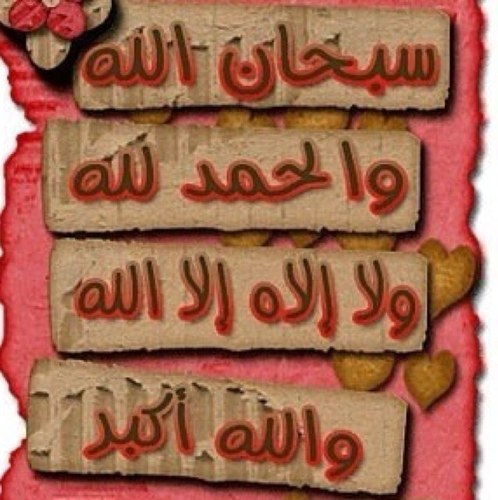 سبحان الله
والحمد لله
ولا إلاه إلا الله
والله أكبر